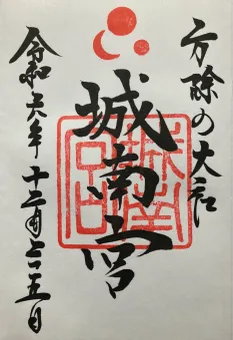 方除の大社
城南宮
令和六年十二月二十五日